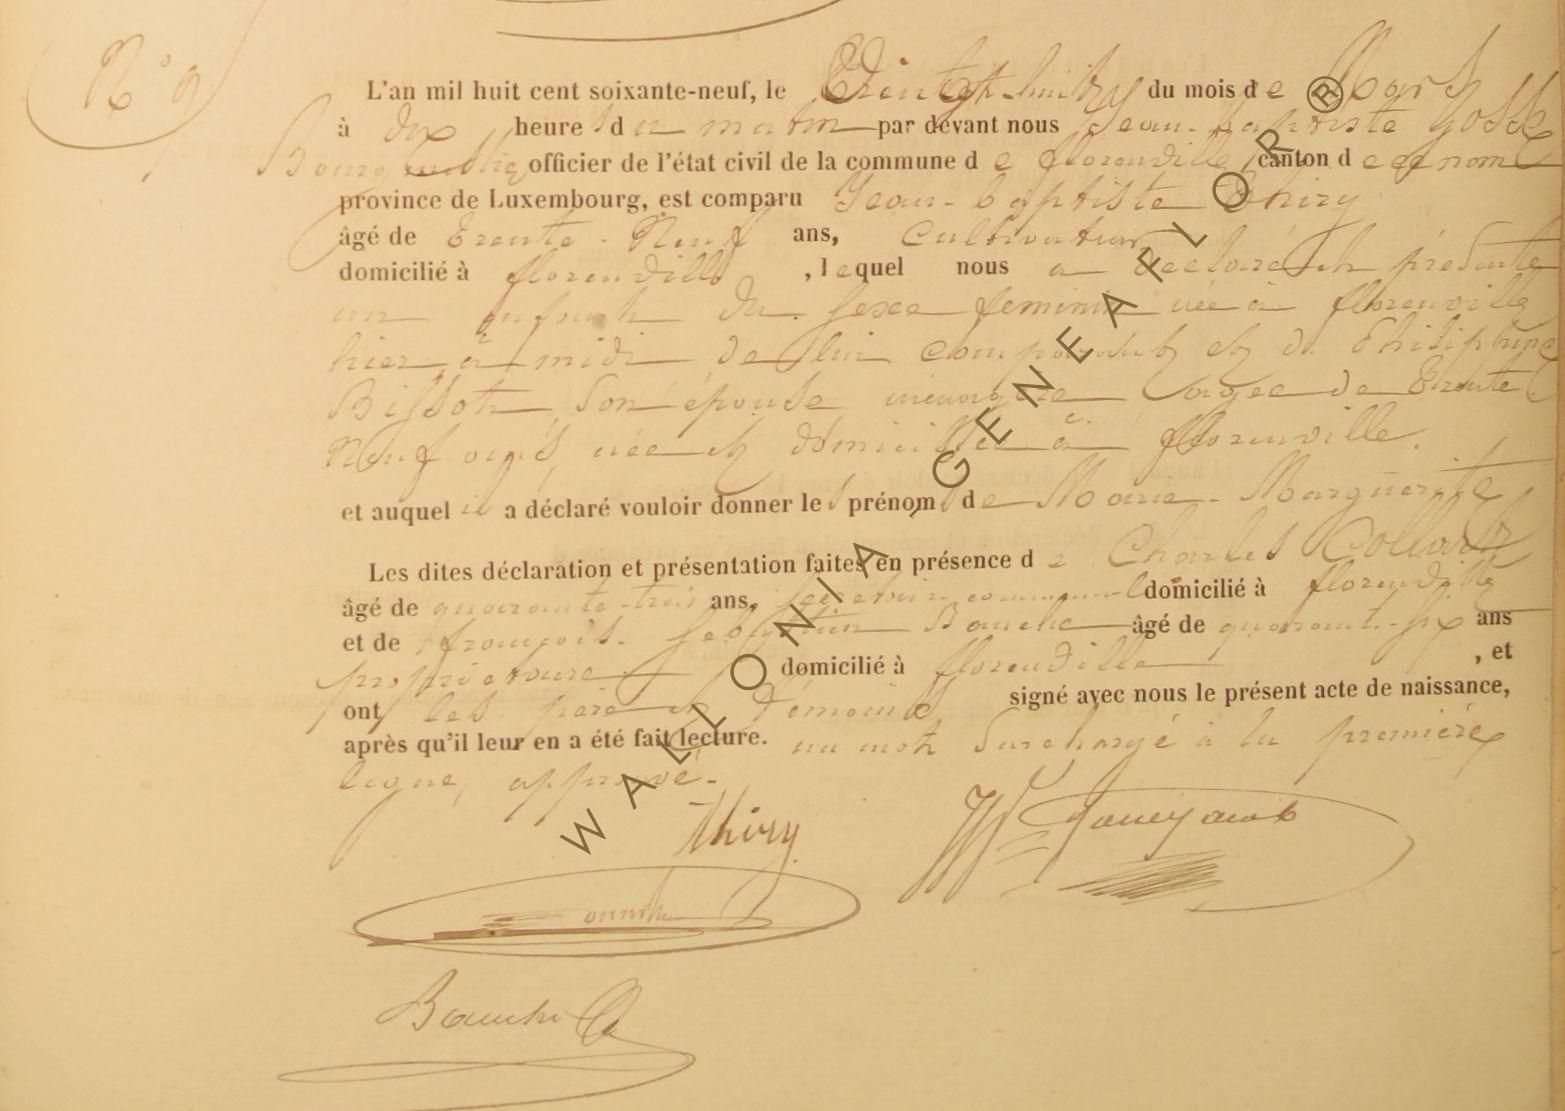 N° 9
L'an mil huit cent soixante-neuf, le du mois de Mars
à dix heures du matin par devant nous Jean-Baptiste Gosse
Bourgmestre officier de l'état civil de la commune de florenville, canton de ce nom
province de Luxembourg, est comparu Jean-baptiste Thiry
âgé de trente-Neuf ans, Cultivateur
domicilié à florenville, lequel nous a déclaré et présenté
un enfant du sexe feminin née à florenville
hier à midi de lui comparant et de Philiphine
Bissot, son épouse menagère âgée de trente
Neuf ans, née et domiciliée à florenville.
et auquel il a déclaré vouloir donner les prénoms de Marie-Marguerite
Les dites déclaration et présentation faites en présence de Charles Collard
âgé de quarante-trois ans, secretaire communal domicilié à florenville
et de françois-Sebastien Bauche âgé de quarante-six ans
proprietaire domicilié à florenville, et
ont les père et témoins signé avec nous le présent acte de naissance,
après qu'il leur en a été fait lecture. un mot surchargé à la première
ligne, approuvé.
Thiry
Bauche
WALLONIA, GENEAFLOR ®